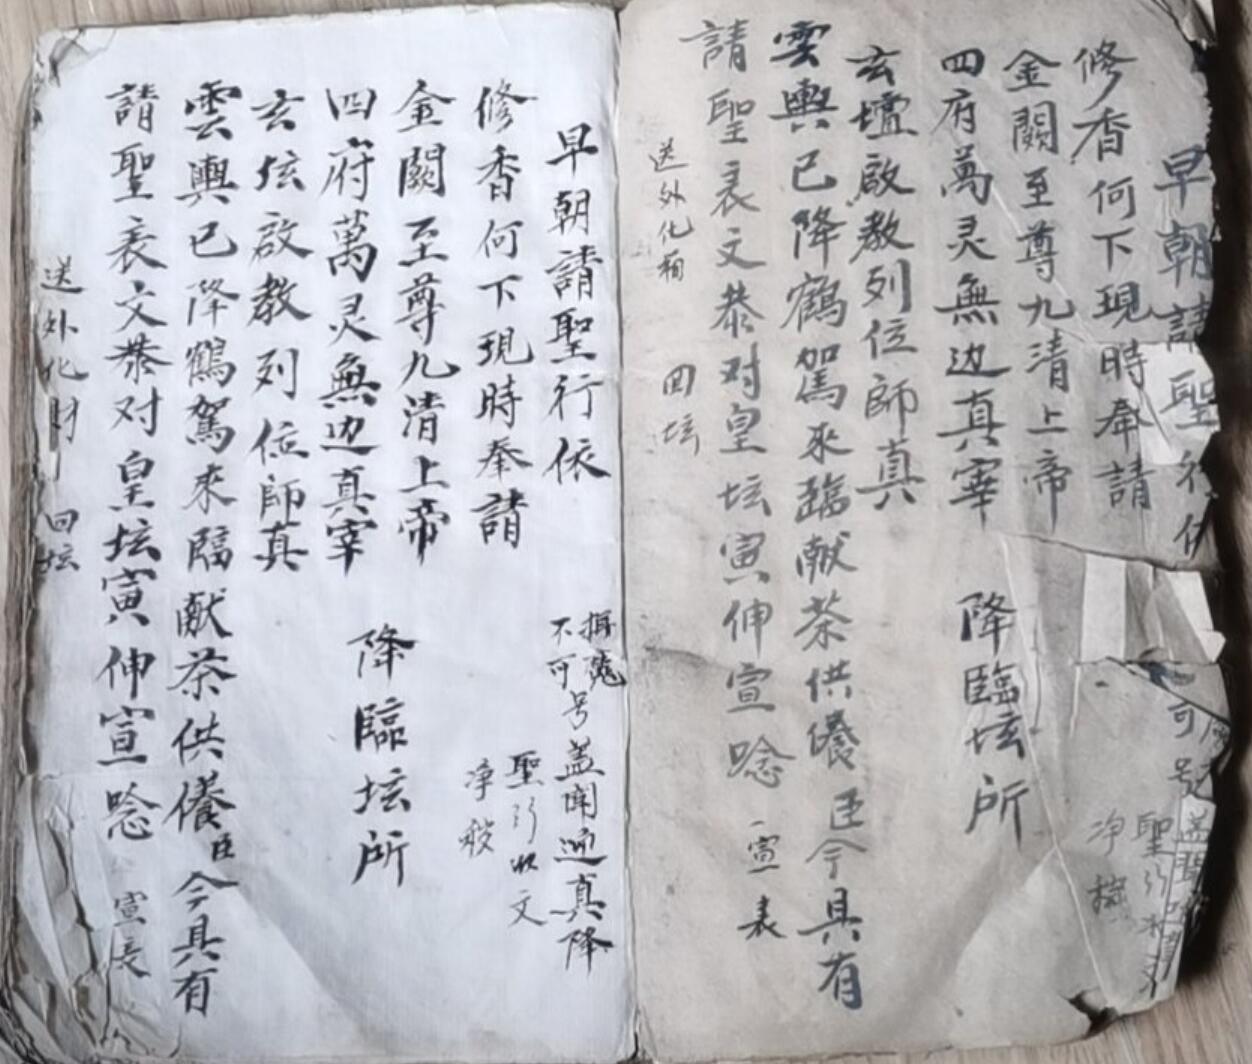 早朝請聖行
修香何下現時奉請
金闕至尊九清上帝
四府萬灵無边真宰
降臨坛所
玄壇啟教列位師真
雲輿已降鶴駕來臨献茶供儀臣今具有
請聖表文恭对皇坛寅伸宣唸
宣表
送外化
回坛
可号
聖行
净
早朝請聖行依
不可号盖聞通真降
聖行收文
净
修香何下現時奉請
金闕至尊九清上帝
四府萬灵無边真宰
降臨坛所
玄坛啟教列位師真
雲輿已降鶴駕來臨献茶供儀臣今具有
請聖表文恭对皇坛寅伸宣唸
宣表
送外化財
回坛